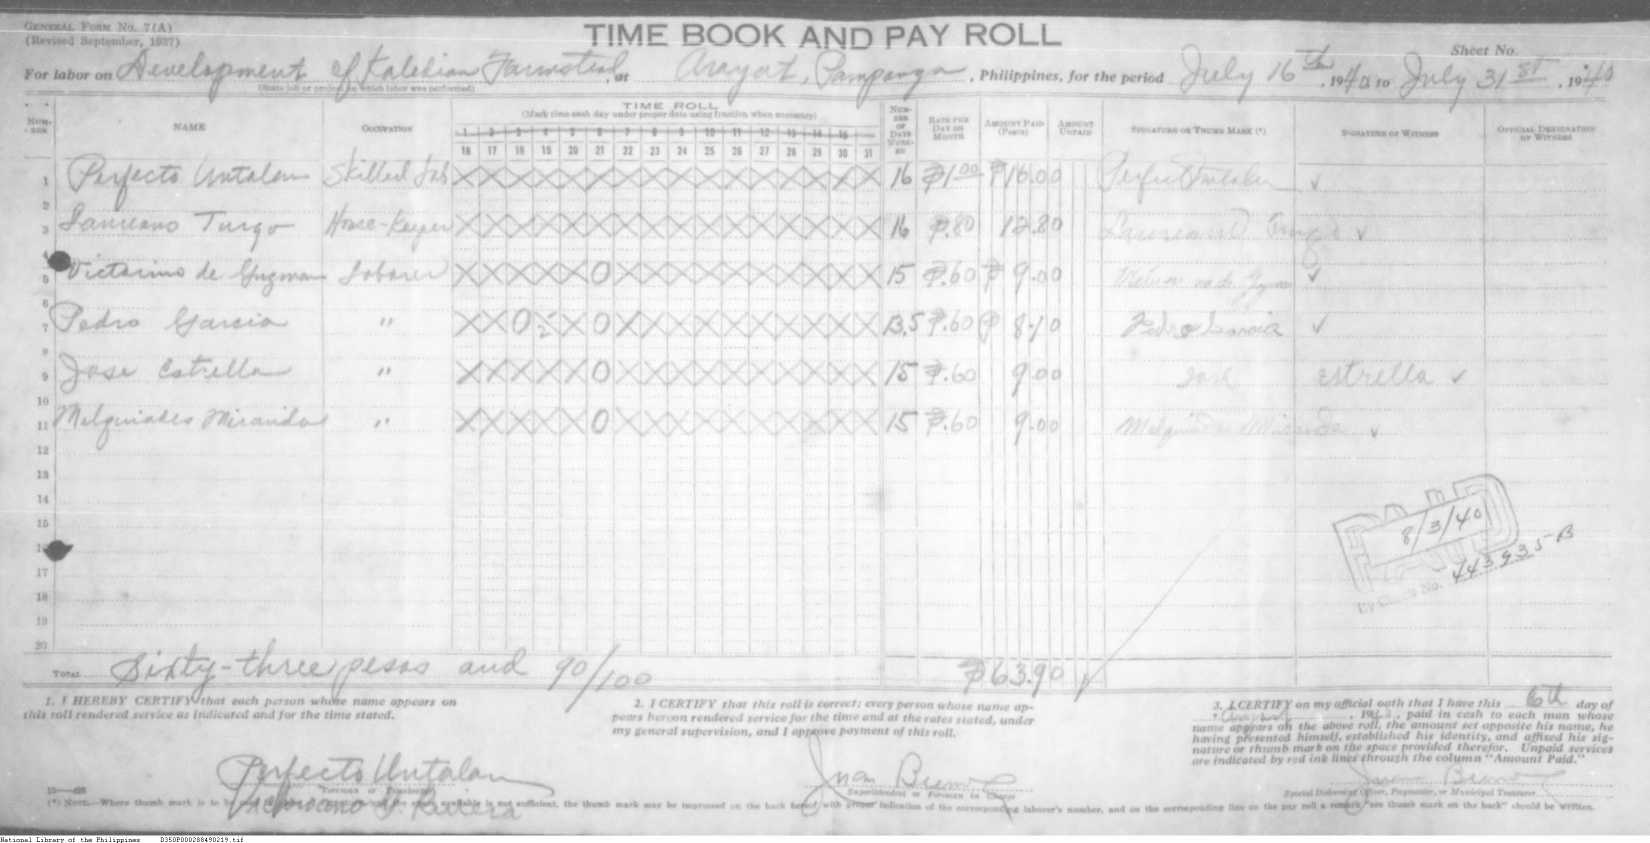 GENERAL FORM NO. 7(A)
(Revised September, 1937)
TIME BOOK AND PAY ROLL
Sheet No.
For labor on Development of Kaledian Farmstead, at Arayat, Pampanga, Philippines, for the period July 16th, 1940 to July 31st, 1940
(State job or project on which labor was performed)
NUMBER NAME OCCUPATION TIME ROLL NUMBER OF DAYS WORKED RATE PER DAY OR MONTH AMOUNT PAID (PESOS) AMOUNT UNPAID SIGNATURE OR THUMB MARK (*) SIGNATURE OF WITNESS OFFICIAL DESIGNATION OF WITNESS
(Mark time each day under proper date using fraction when necessary)
1 2 3 4 5 6 7 8 9 10 11 12 13 14 15
16 17 18 19 20 21 22 23 24 25 26 27 28 29 30 31
1 Perfecto Untalan Skilled Lab X X X X X X X X X X X X X X X X 16 ₱1.00 ₱16.00 Perfecto Untalan ✓
2
3 Laureano Turgo House-Keeper X X X X X X X X X X X X X X X X 16 ₱.80 12.80 Laureano ✓
4
5 Victorino de Guzman Laborer X X X X X 0 X X X X X X X X X X 15 ₱.60 ₱9.00 ✓
6
7 Pedro Garcia " X X 0 ½ X 0 X X X X X X X X X X 13.5 ₱.60 8.10 Pedro Garcia ✓
8
9 Jose Estrella " X X X X X 0 X X X X X X X X X X 15 ₱.60 9.00 Jose Estrella ✓
10
11 Melquiades Miranda " X X X X X 0 X X X X X X X X X X 15 ₱.60 9.00 Melquiades Miranda ✓
12
13
14
15
16
17
18
19
20
8/3/40
By Check No. 443935-B
TOTAL Sixty-three pesos and 90/100 ₱63.90
1. I HEREBY CERTIFY that each person whose name appears on
this roll rendered service as indicated and for the time stated.
Perfecto Untalan
2. I CERTIFY that this roll is correct; every person whose name ap-
pears hereon rendered service for the time and at the rates stated, under
my general supervision, and I approve payment of this roll.
Juan
Superintendent or Foreman in Charge
3. I CERTIFY on my official oath that I have this 6th day of
August, 1940, paid in cash to each man whose
name appears on the above roll, the amount set opposite his name, he
having presented himself, established his identity, and affixed his sig-
nature or thumb mark on the space provided therefor. Unpaid services
are indicated by red ink lines through the column "Amount Paid."
Special Disbursing Officer, Paymaster, or Municipal Treasurer
Rivera
(*) NOTE.—Where thumb mark is to be is not sufficient, the thumb mark may be impressed on the back hereof with proper indication of the corresponding laborer's number, and on the corresponding line on the pay roll a remark "see thumb mark on the back" should be written.
National Library of the Philippines D350P000288490219.tif